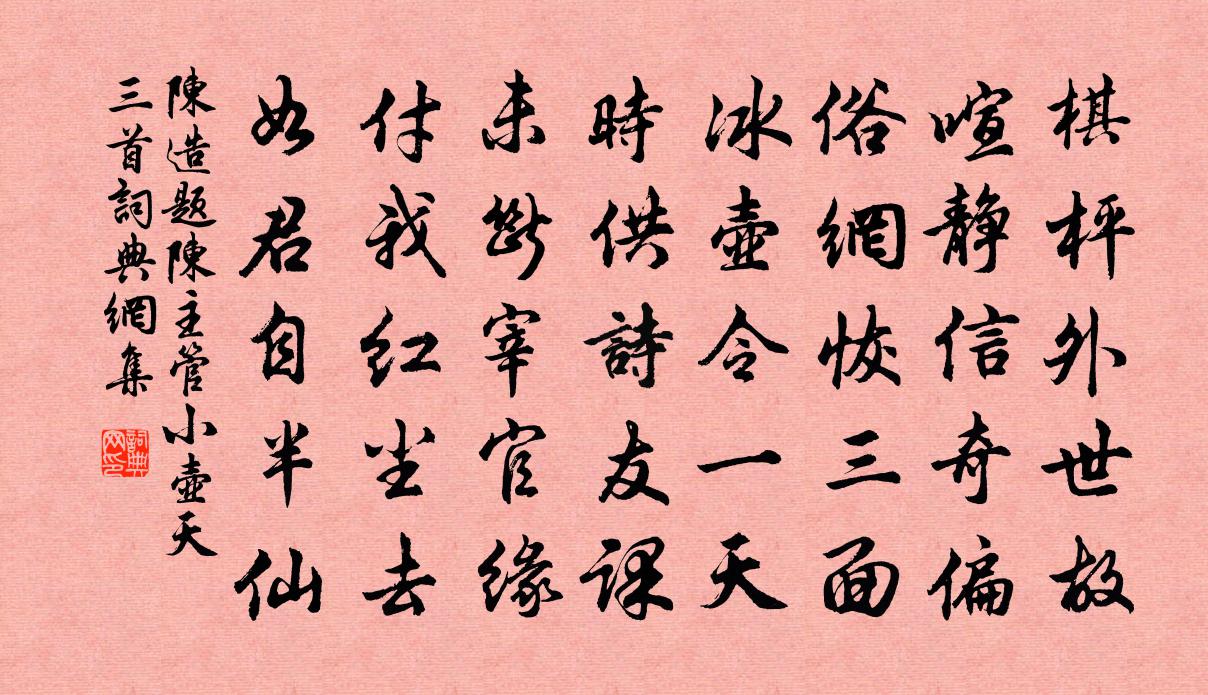 棋枰外世故
喧静信奇偏
俗網恢三面
冰壺令一天
時供詩友課
未斷宰官緣
付我红尘去
如君自半仙
陳造題陳主管小壺天
三首詞典網集
詞典網印